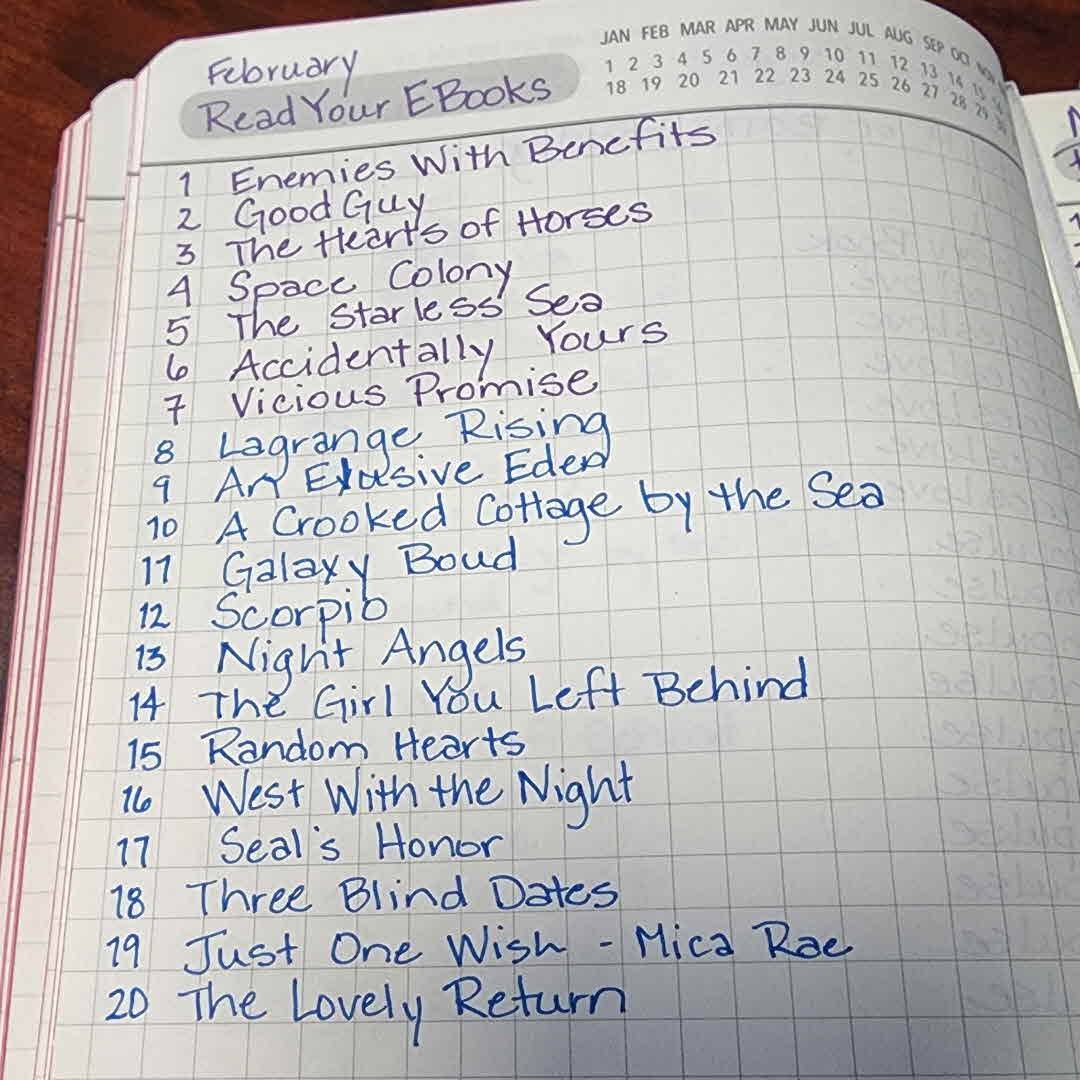 JAN FEB MAR APR MAY JUN JUL AUG SEP OCT NOV
1 2 3 4 5 6 7 8 9 10 11 12 13 14 15
18 19 20 21 22 23 24 25 26 27 28 29 30
February
Read Your EBooks
1 Enemies With Benefits
2 Good Guy
3 The Hearts of Horses
4 Space Colony
5 The Starless Sea
6 Accidentally Yours
7 Vicious Promise
8 Lagrange Rising
9 An Elusive Eden
10 A Crooked Cottage by the Sea
11 Galaxy Boud
12 Scorpio
13 Night Angels
14 The Girl You Left Behind
15 Random Hearts
16 West With the Night
17 Seal's Honor
18 Three Blind Dates
19 Just One Wish - Mica Rae
20 The Lovely Return